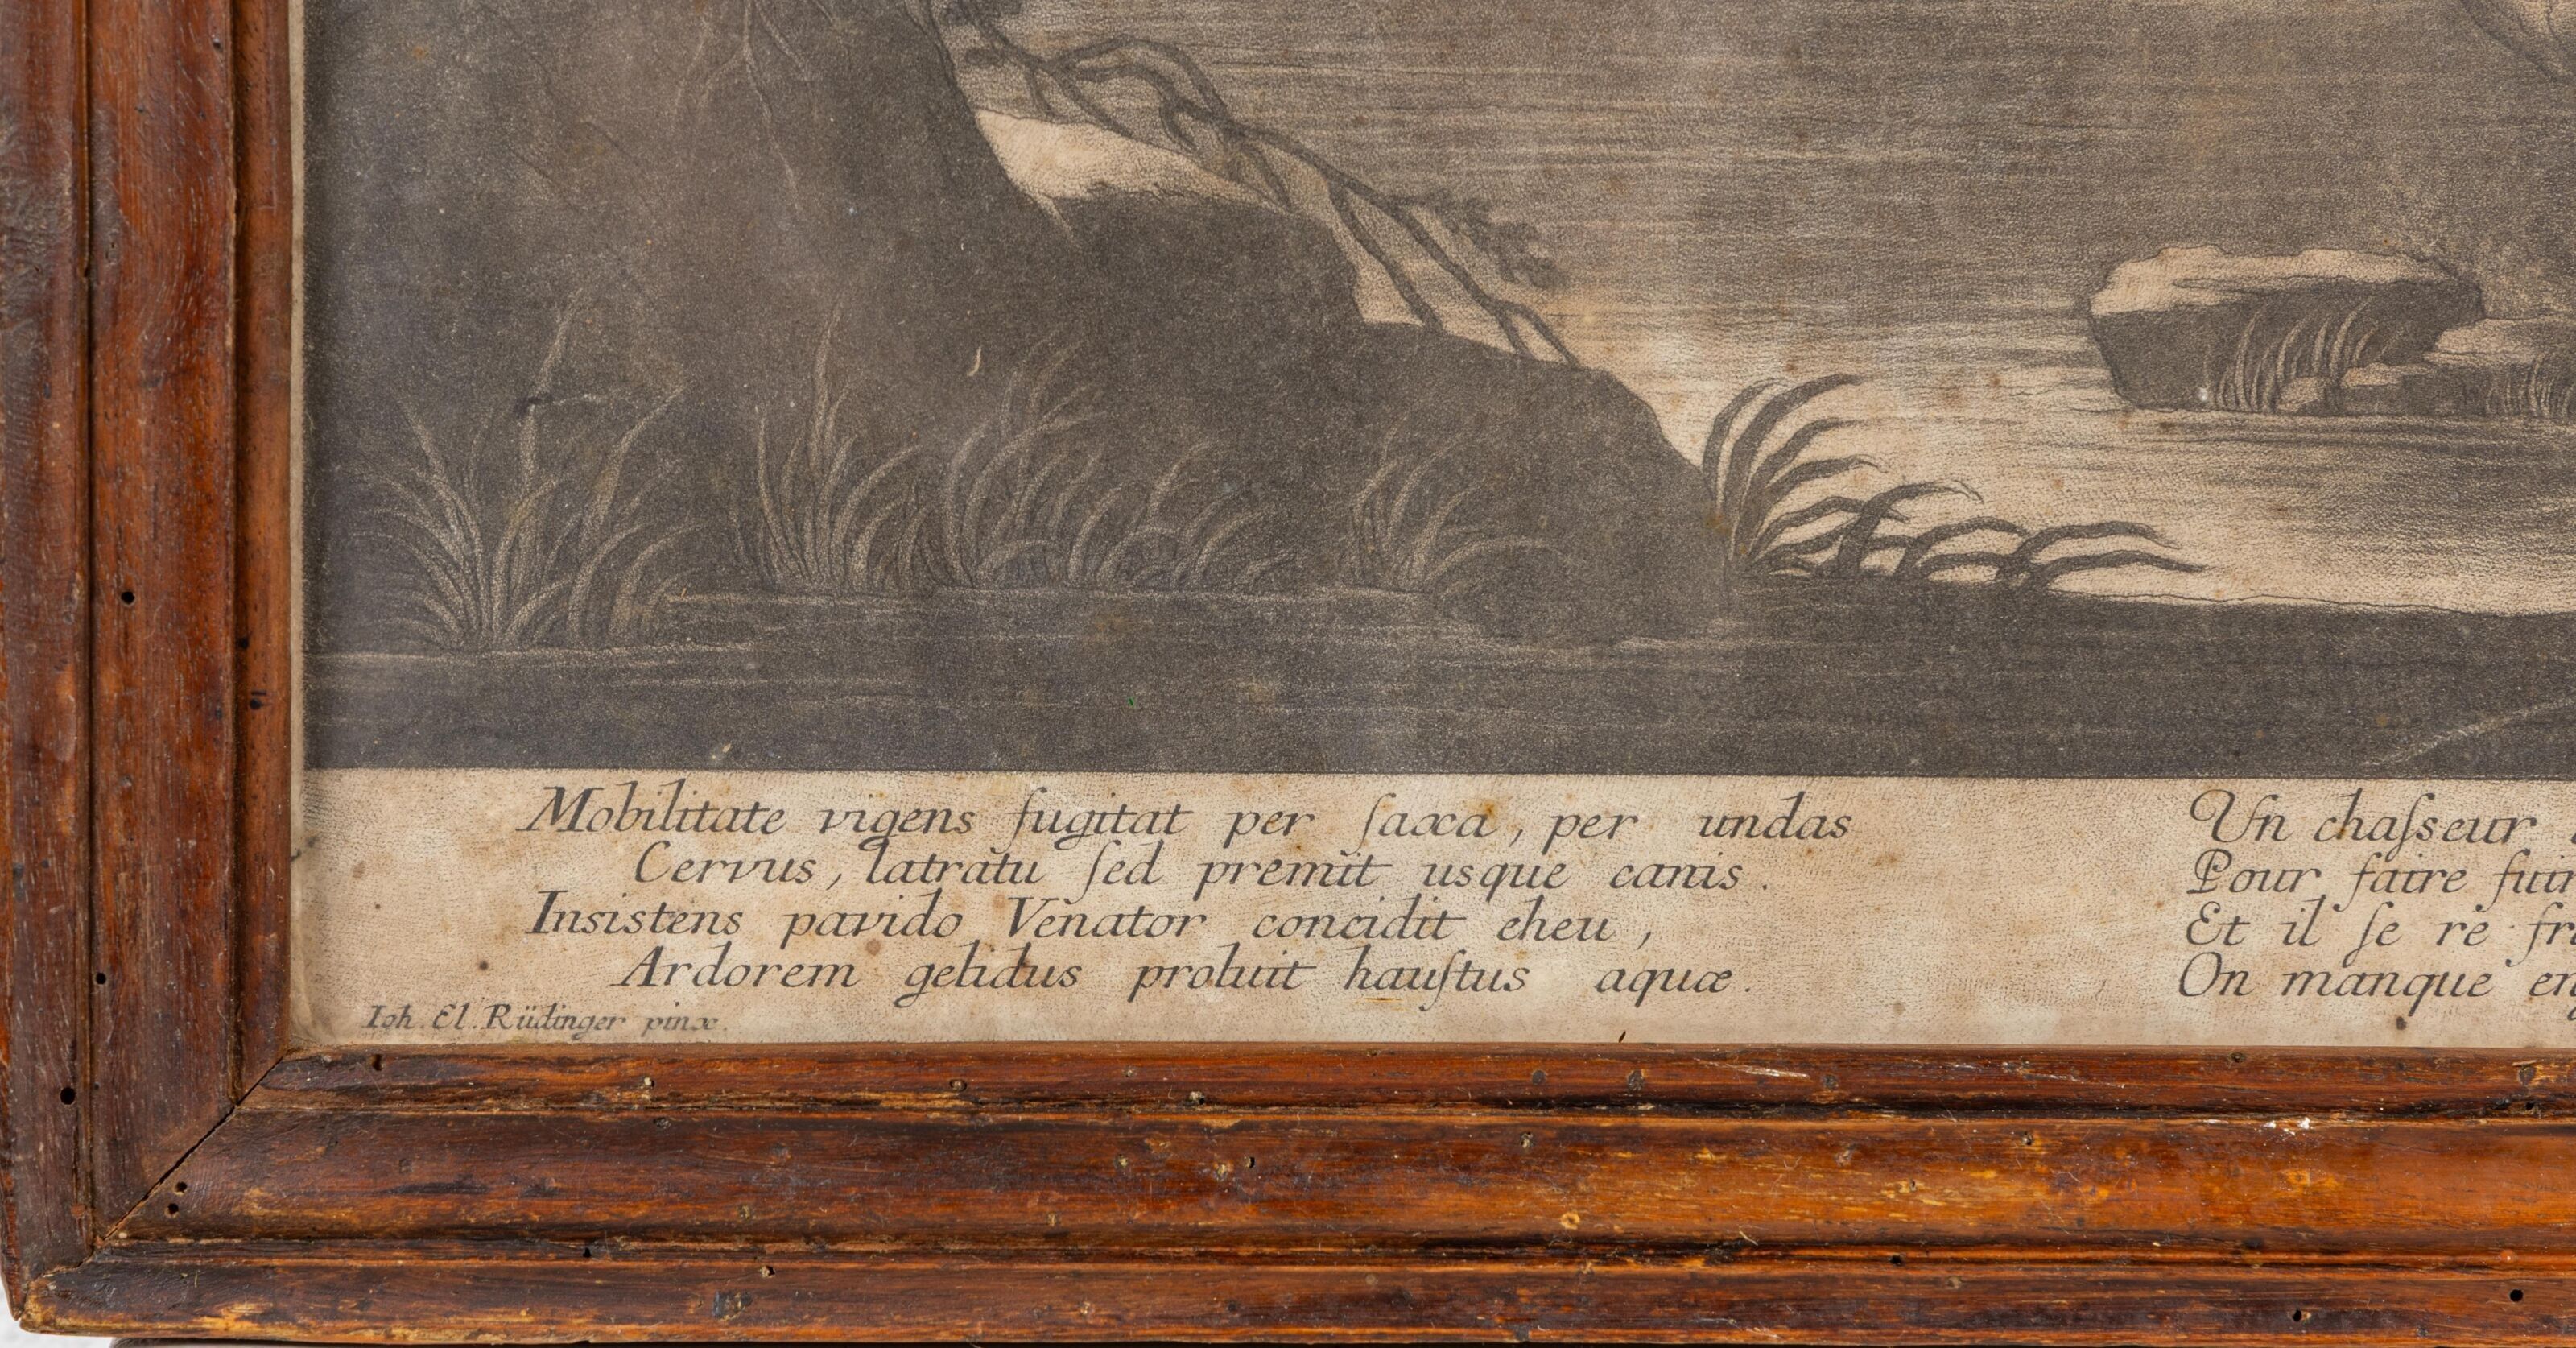 Mobilitate vigens fugitat per ſaxa, per undas
Cervus, latratu ſed premit usque canis.
Insistens pavido Venator concidit eheu,
Ardorem gelidus proluit hauſtus aquæ.
Ioh. El. Rüdinger pinx.
Un chaſseur
Pour faire fuir
Et il ſe re fr
On manque en